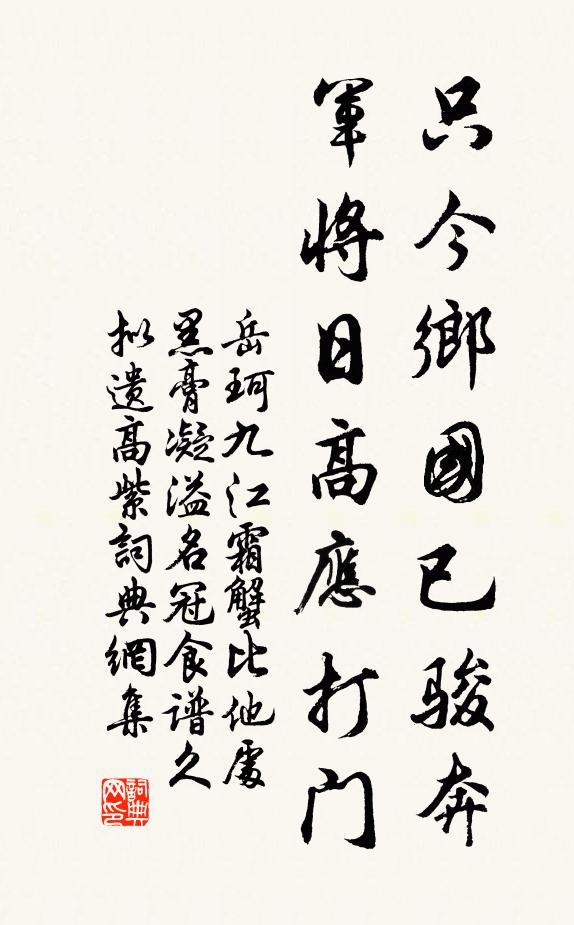 只今鄉國已駿奔
軍將日高應打門
岳珂九江霜蟹比他處
黑膏凝溢名冠食譜久
拟遺高紫詞典網集
詞典网印